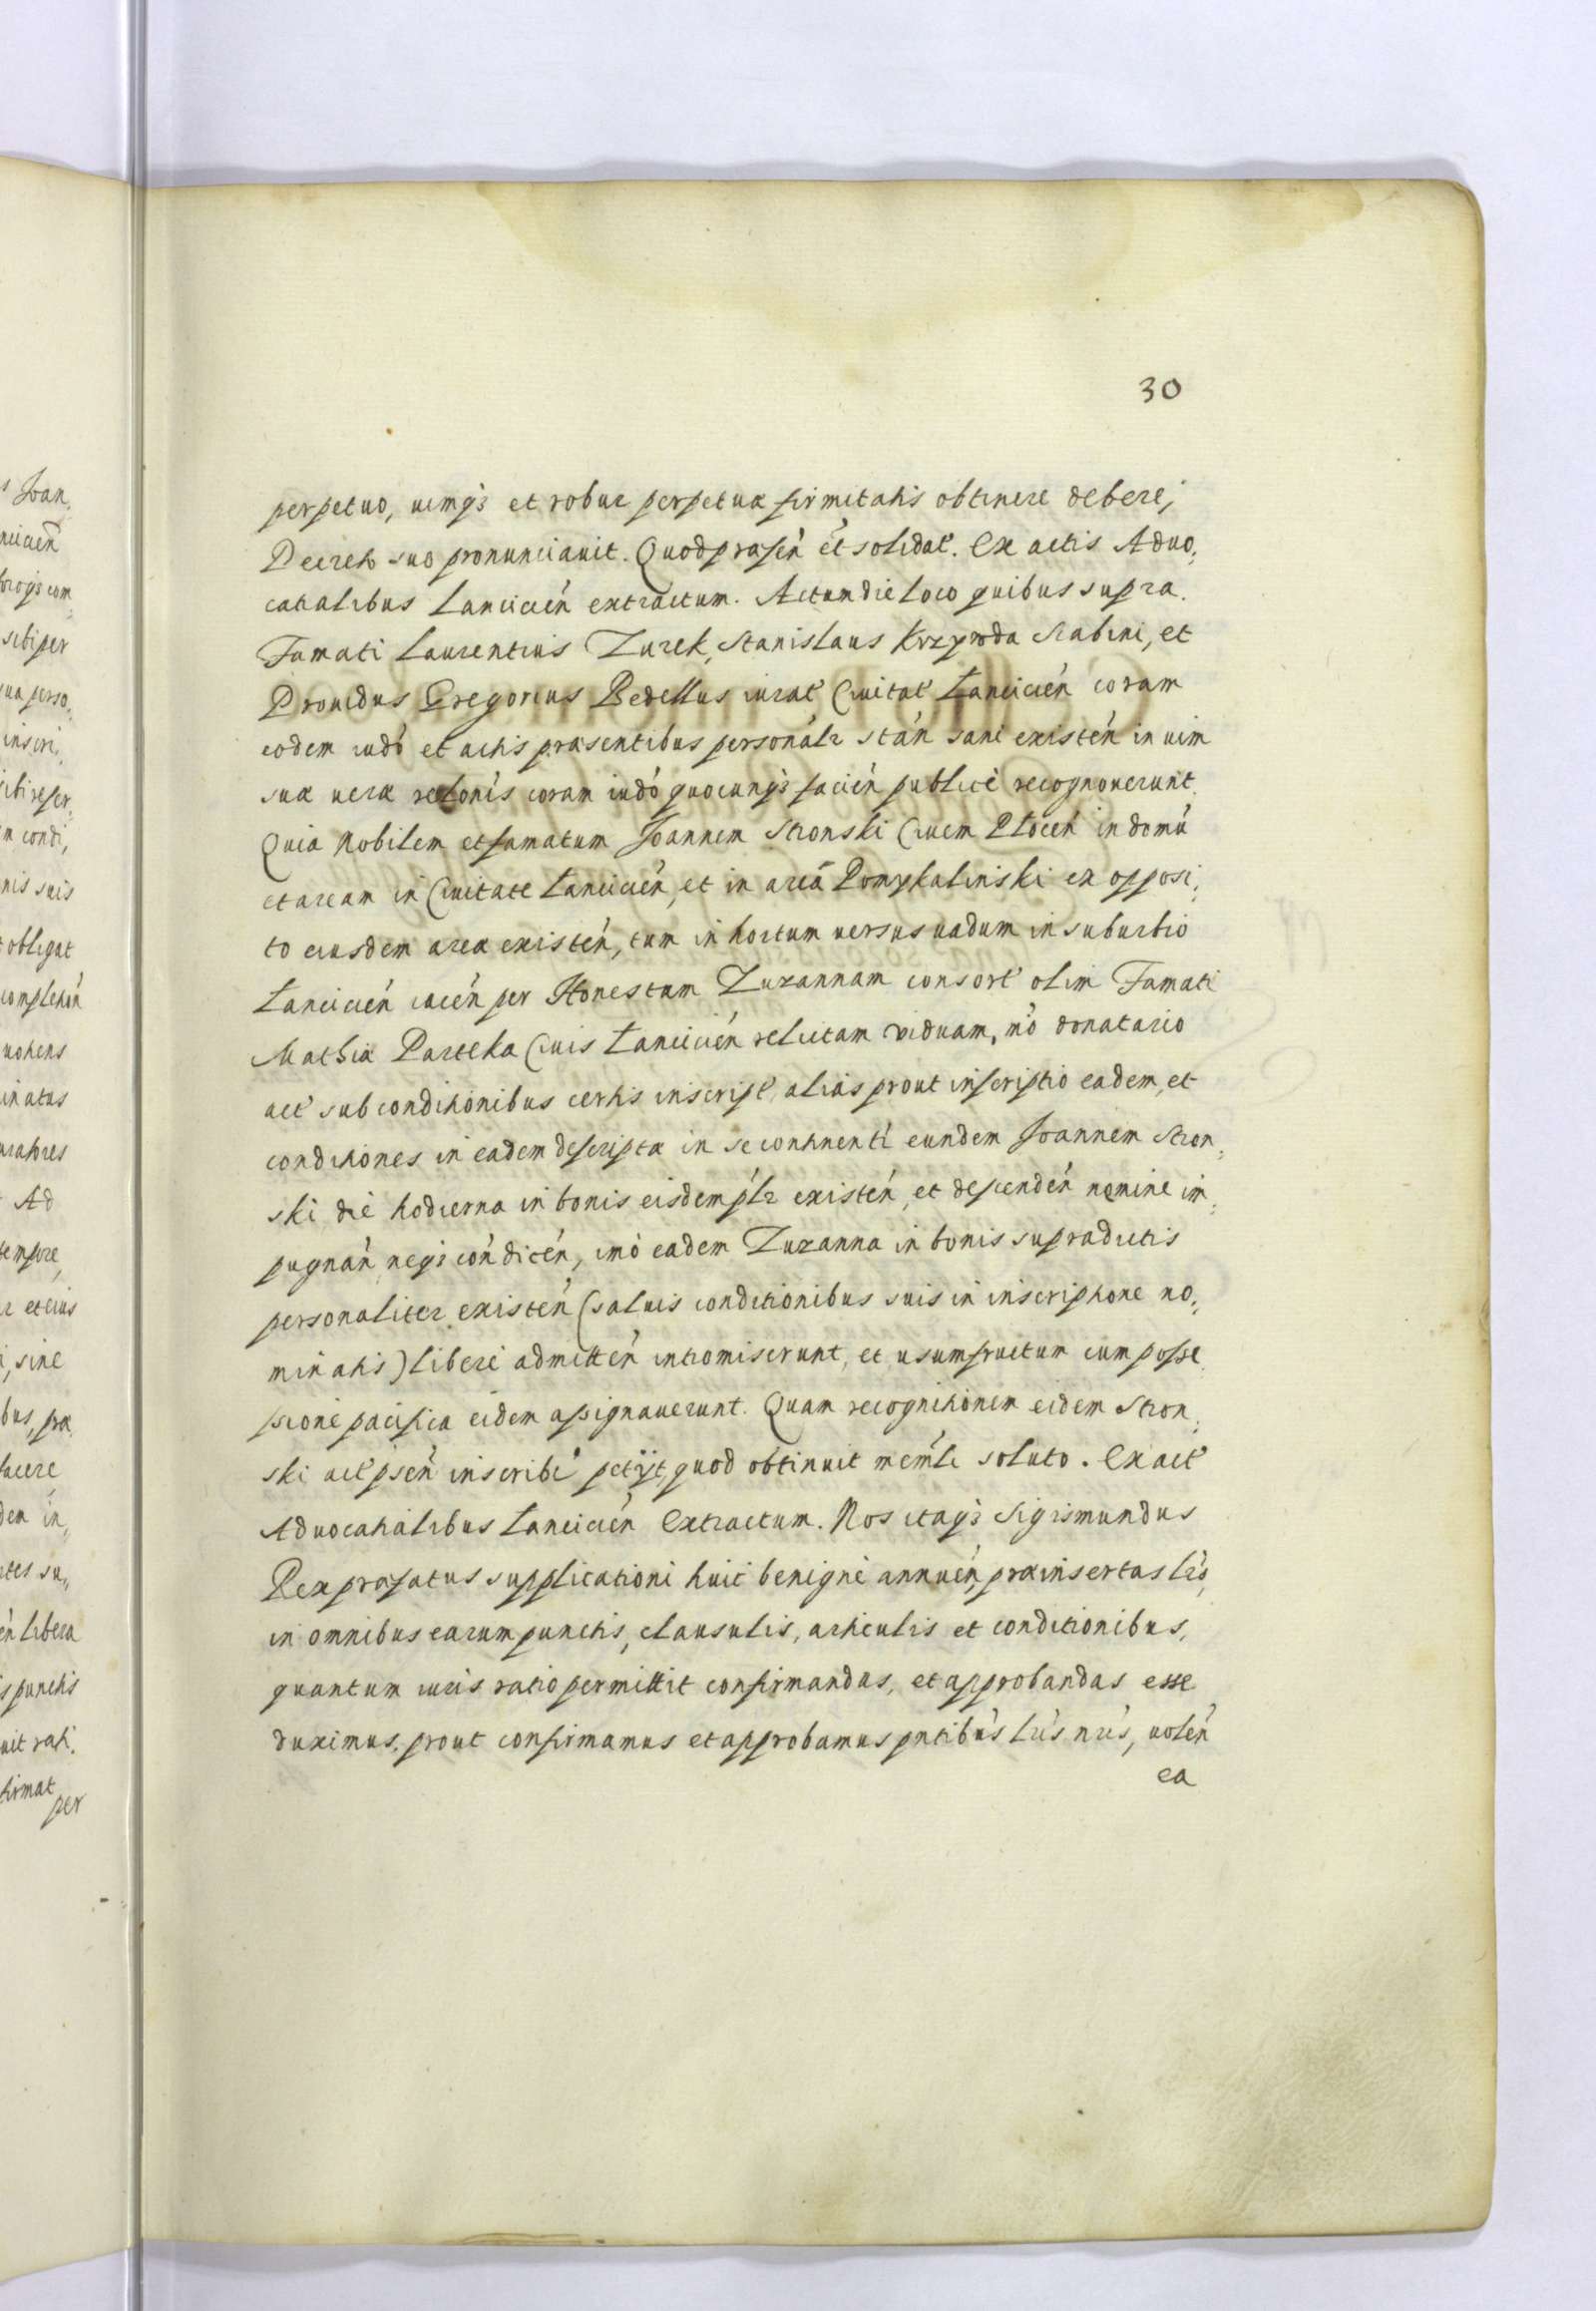 30
perpetuo, uimq3 et robur perpetuæ firmitatis obtinere debere,
Decreto suo pronunciauit. Quod præsén ét solidat. Ex actis Aduo,
catialibus Lancicién extractum. Actum die loco quibus supra.
Famati Laurentius Zurek, Stanislaus Krzywda Scabini, et
Prouidus Gregorius Bedellus iurat Ciuitat Lancicién coram
eodem iudó et actis præsentibus personálr stán sani existén in uim
suæ ueræ relonis coram iudó quocunq3 facién publicè recognouerunt.
Quia Nobilem et famatum Joannem Stronski Ciuem Plocén in domú
et aream in Ciuitate Lancicién, et in areâ Pomykalinski ex opposi,
to eiusdem areæ existén, tum in hortum uersus uadum in suburbio
Lancicién iacén per Honestam Zuzannam consort olim Famati
Mathiæ Parteka Ciuis Lancicién relictam viduam, mó donatario
act sub conditionibus certis inscript, aliás prout inscriptio eadem, et
conditiones in eadem descriptæ in se continentí eundem Joannem Stron,
ski die hodierna in bonis eisdem plr existén, et descendén nemine im,
pugnán neq3 cóndicén, imò eadem Zuzanna in bonis supradictis
personaliter existén (saluis conditionibus suis in inscriptione no,
minatis) liberè admittén intromiserunt, et usumfructum cum posse
ssione pacifica eidem assignauerunt. Quam recognitionem eidem Stron,
ski act psén inscribi petÿt, quod obtinuit memle soluto. Ex act
Aduocatialibus Lancicién Extractum. Nos itaq3 Sigismundus
Rex præfatus supplicationi huic benignè annuén, præinsertas lrás,
in omnibus earum punctis, clausulis, articulis et conditionibus,
quantum iuris ratio permittit confirmandas, et approbandas esse
duximus, prout confirmamus et approbamus pntibús lrís nrís, uolén
ea